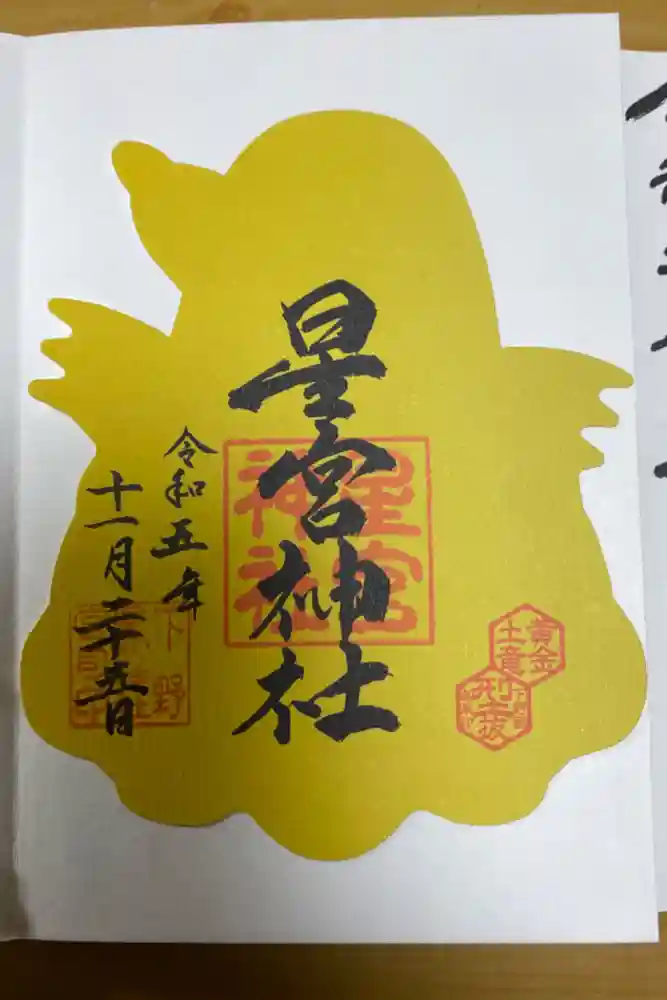 星宮神社
令和五年
十一月二十五日
星宮
神社
下野
黄金
土竜
型抜